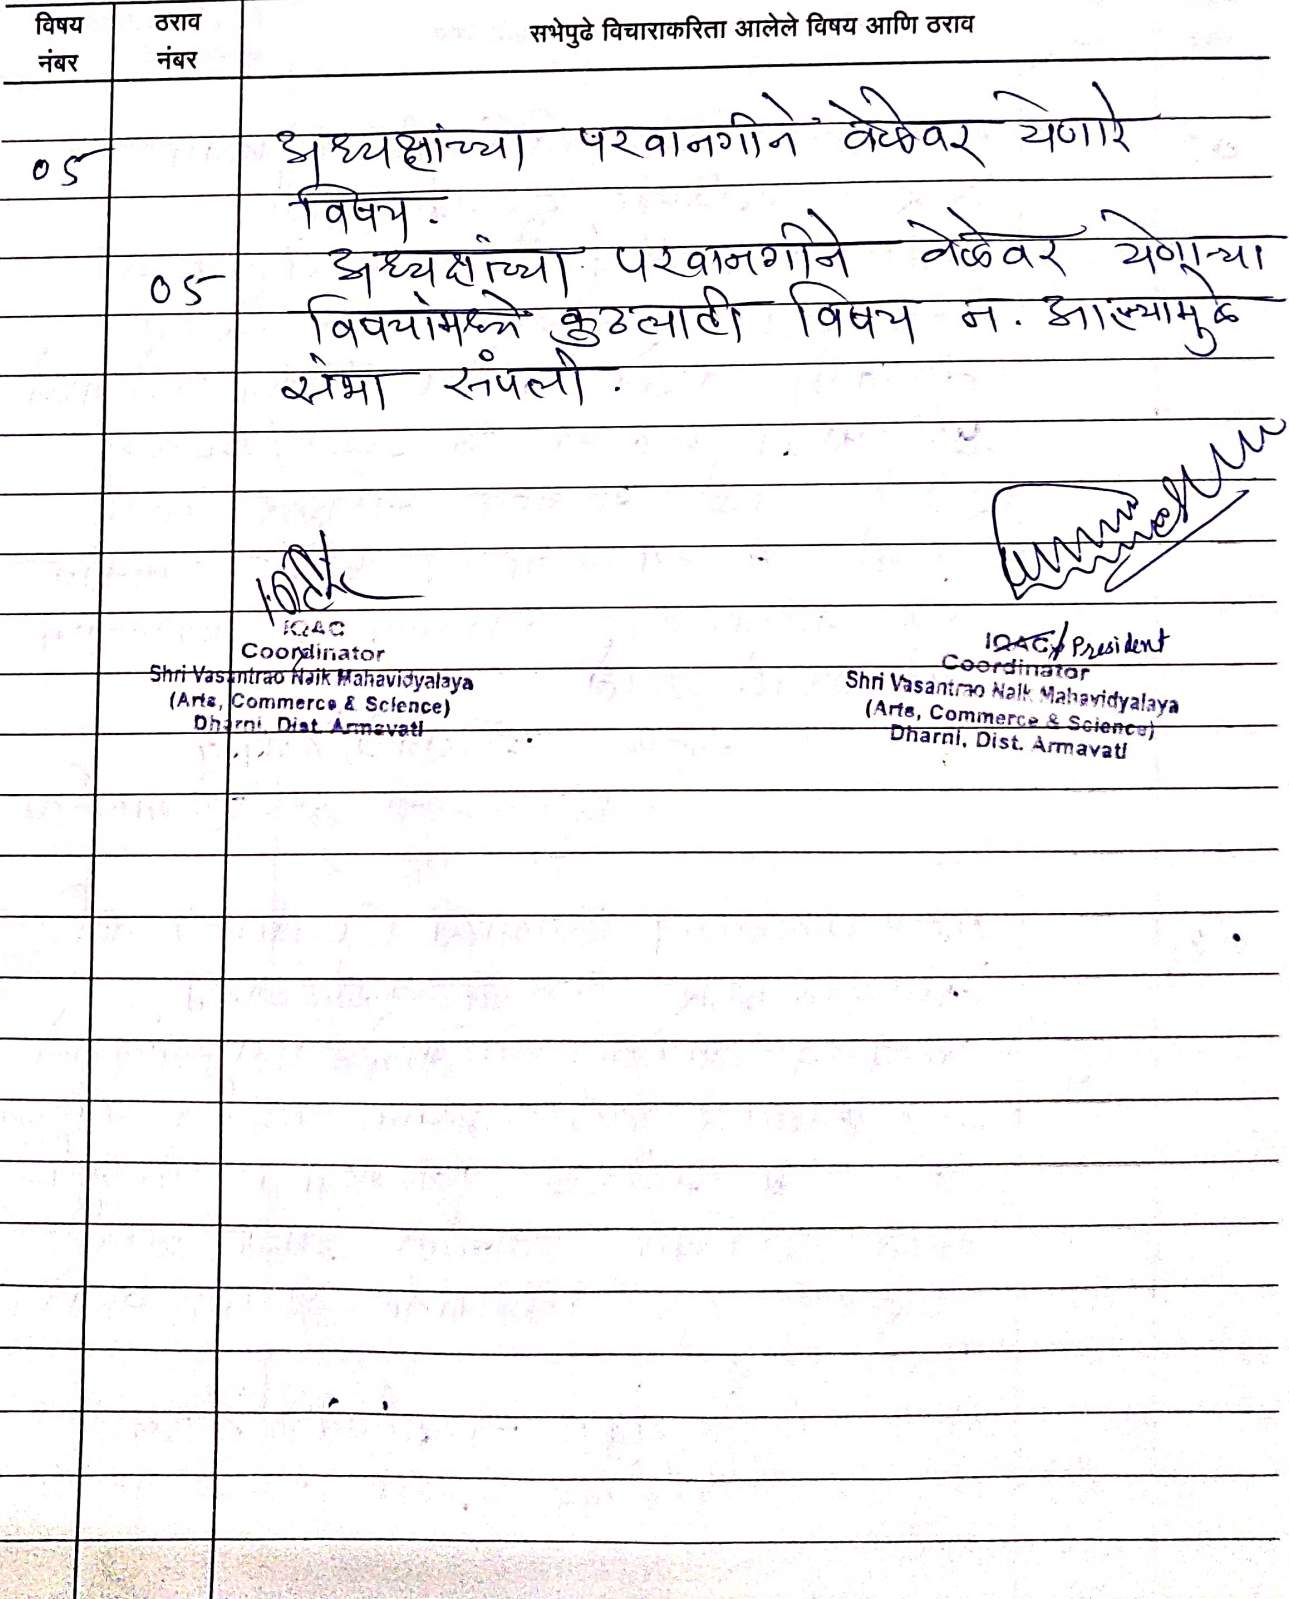 विषय नंबर
ठराव नंबर
सभेपुढे विचाराकरिता आलेले विषय आणि ठराव
05 अध्यक्षांच्या परवानगीने वेळेवर येणारे
विषय.
अध्यक्षांच्या परवानगीने वेळेवर येणाऱ्या
05 विषयांमध्ये कुठलाही विषय न. आल्यामुळे
सभा संपली.
IQAC
Coordinator
Shri Vasantrao Naik Mahavidyalaya
(Arts, Commerce & Science)
Dharni, Dist. Armavati
IQAC/ President
Coordinator
Shri Vasantrao Naik Mahavidyalaya
(Arts, Commerce & Science)
Dharni, Dist. Armavati